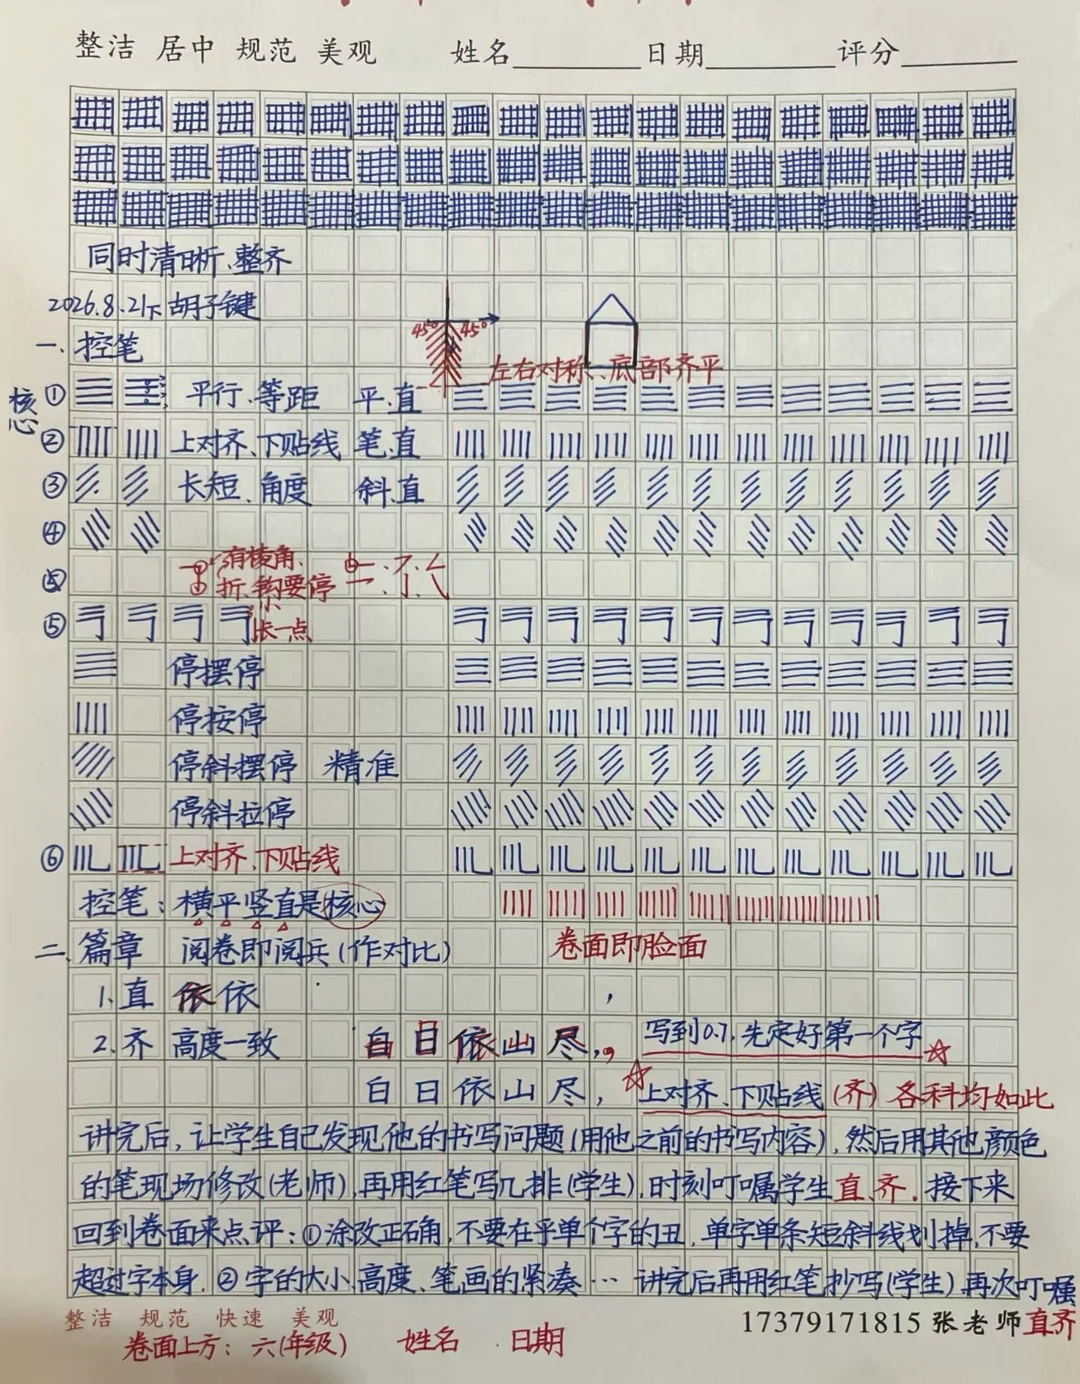 整洁 居中 规范 美观 姓名 日期 评分
同时清晰、整齐
2026.8.21下 胡子键
45° 45°
一、控笔
左右对称、底部齐平
核心
① 平行、等距 平、直
② 上对齐、下贴线 笔、直
③ 长短、角度 斜、直
④
有棱角、
⑤ 折、钩要停
小
⑤ 长一点
停摆停
停按停
停斜摆停 精准
停斜拉停
⑥ 上对齐、下贴线
控笔：横平竖直是核心
二、篇章 阅卷即阅兵(作对比) 卷面即脸面
1.直 依依 ，
2.齐 高度一致 白日依山尽， 写到0.7，先定好第一个字☆
白日依山尽， ☆上对齐、下贴线(齐) 各科均如此
讲完后，让学生自己发现他的书写问题(用他之前的书写内容)，然后用其他颜色
的笔现场修改(老师)，再用红笔写几排(学生)，时刻叮嘱学生直、齐．接下来
回到卷面来点评：①涂改正确，不要在乎单个字的丑，单字单条短斜线划掉，不要
超过字本身．②字的大小、高度、笔画的紧凑… 讲完后再用红笔抄写(学生)再次叮嘱
整洁 规范 快速 美观 17379171815 张老师 直齐
卷面上方：六(年级) 姓名 日期